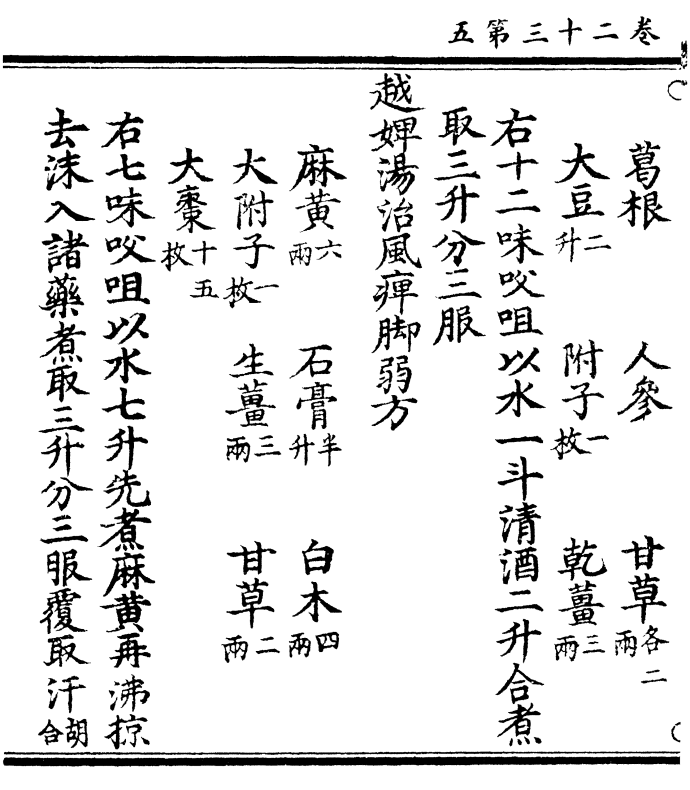 巻二十三第五
葛根 人參 甘草各二兩
大豆二升 附子一枚 乾薑三兩
右十二味㕮咀以水一斗清酒二升合煮
取三升分三服
越婢湯治風痺脚弱方
麻黄六兩 石膏半升 白木四兩
大附子一枚 生薑三兩 甘草二兩
大棗十五枚
右七味㕮咀以水七升先煮麻黄再沸掠
去沫入諸藥煮取三升分三服覆取汗胡合